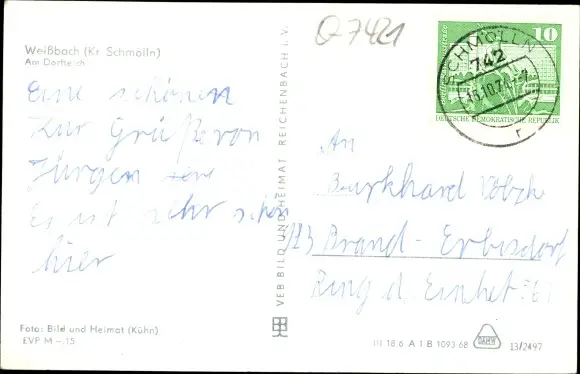 Weißbach (Kr. Schmölln)
Am Dorfteich
Q 7421
10
DEUTSCHE DEMOKRATISCHE REPUBLIK
SCHMÖLLN
742
r
Eine schönen
Kur Grüße von
Jürgen
Es ist sehr schön
hier
VEB BILD UND HEIMAT REICHENBACH i. V.
An
Burkhard
Brand-Erbisdorf
Ring d. Einheit 61
Foto: Bild und Heimat (Kühn)
EVP M -.15
III 18 6 A 1 B 1093 68
13/2497